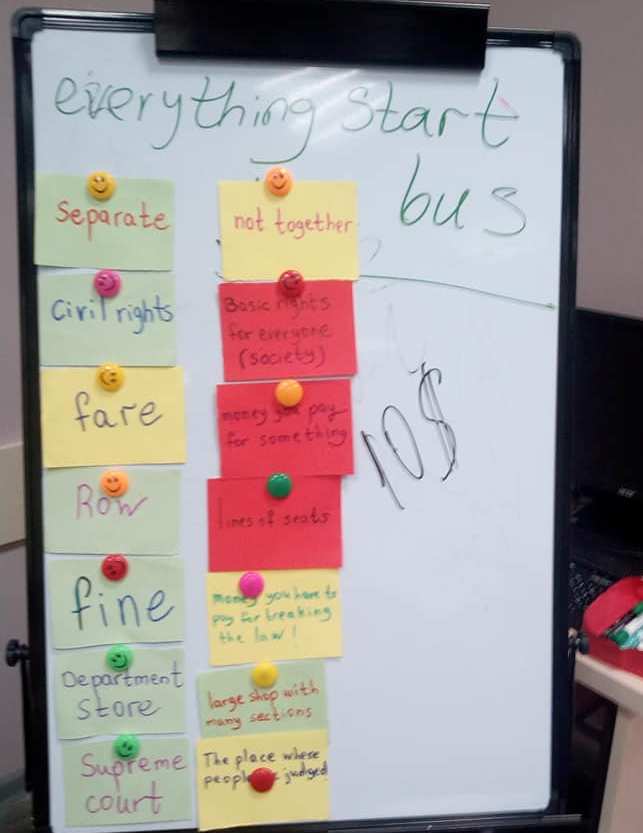 everything start
bus
Separate
not together
Civil rights
Basic rights
for everyone
(society)
fare
money you pay
for something
10$
Row
lines of seats
fine
money you have to
pay for breaking
the law!
Department
Store
large shop with
many sections
Supreme
court
The place where
people judged